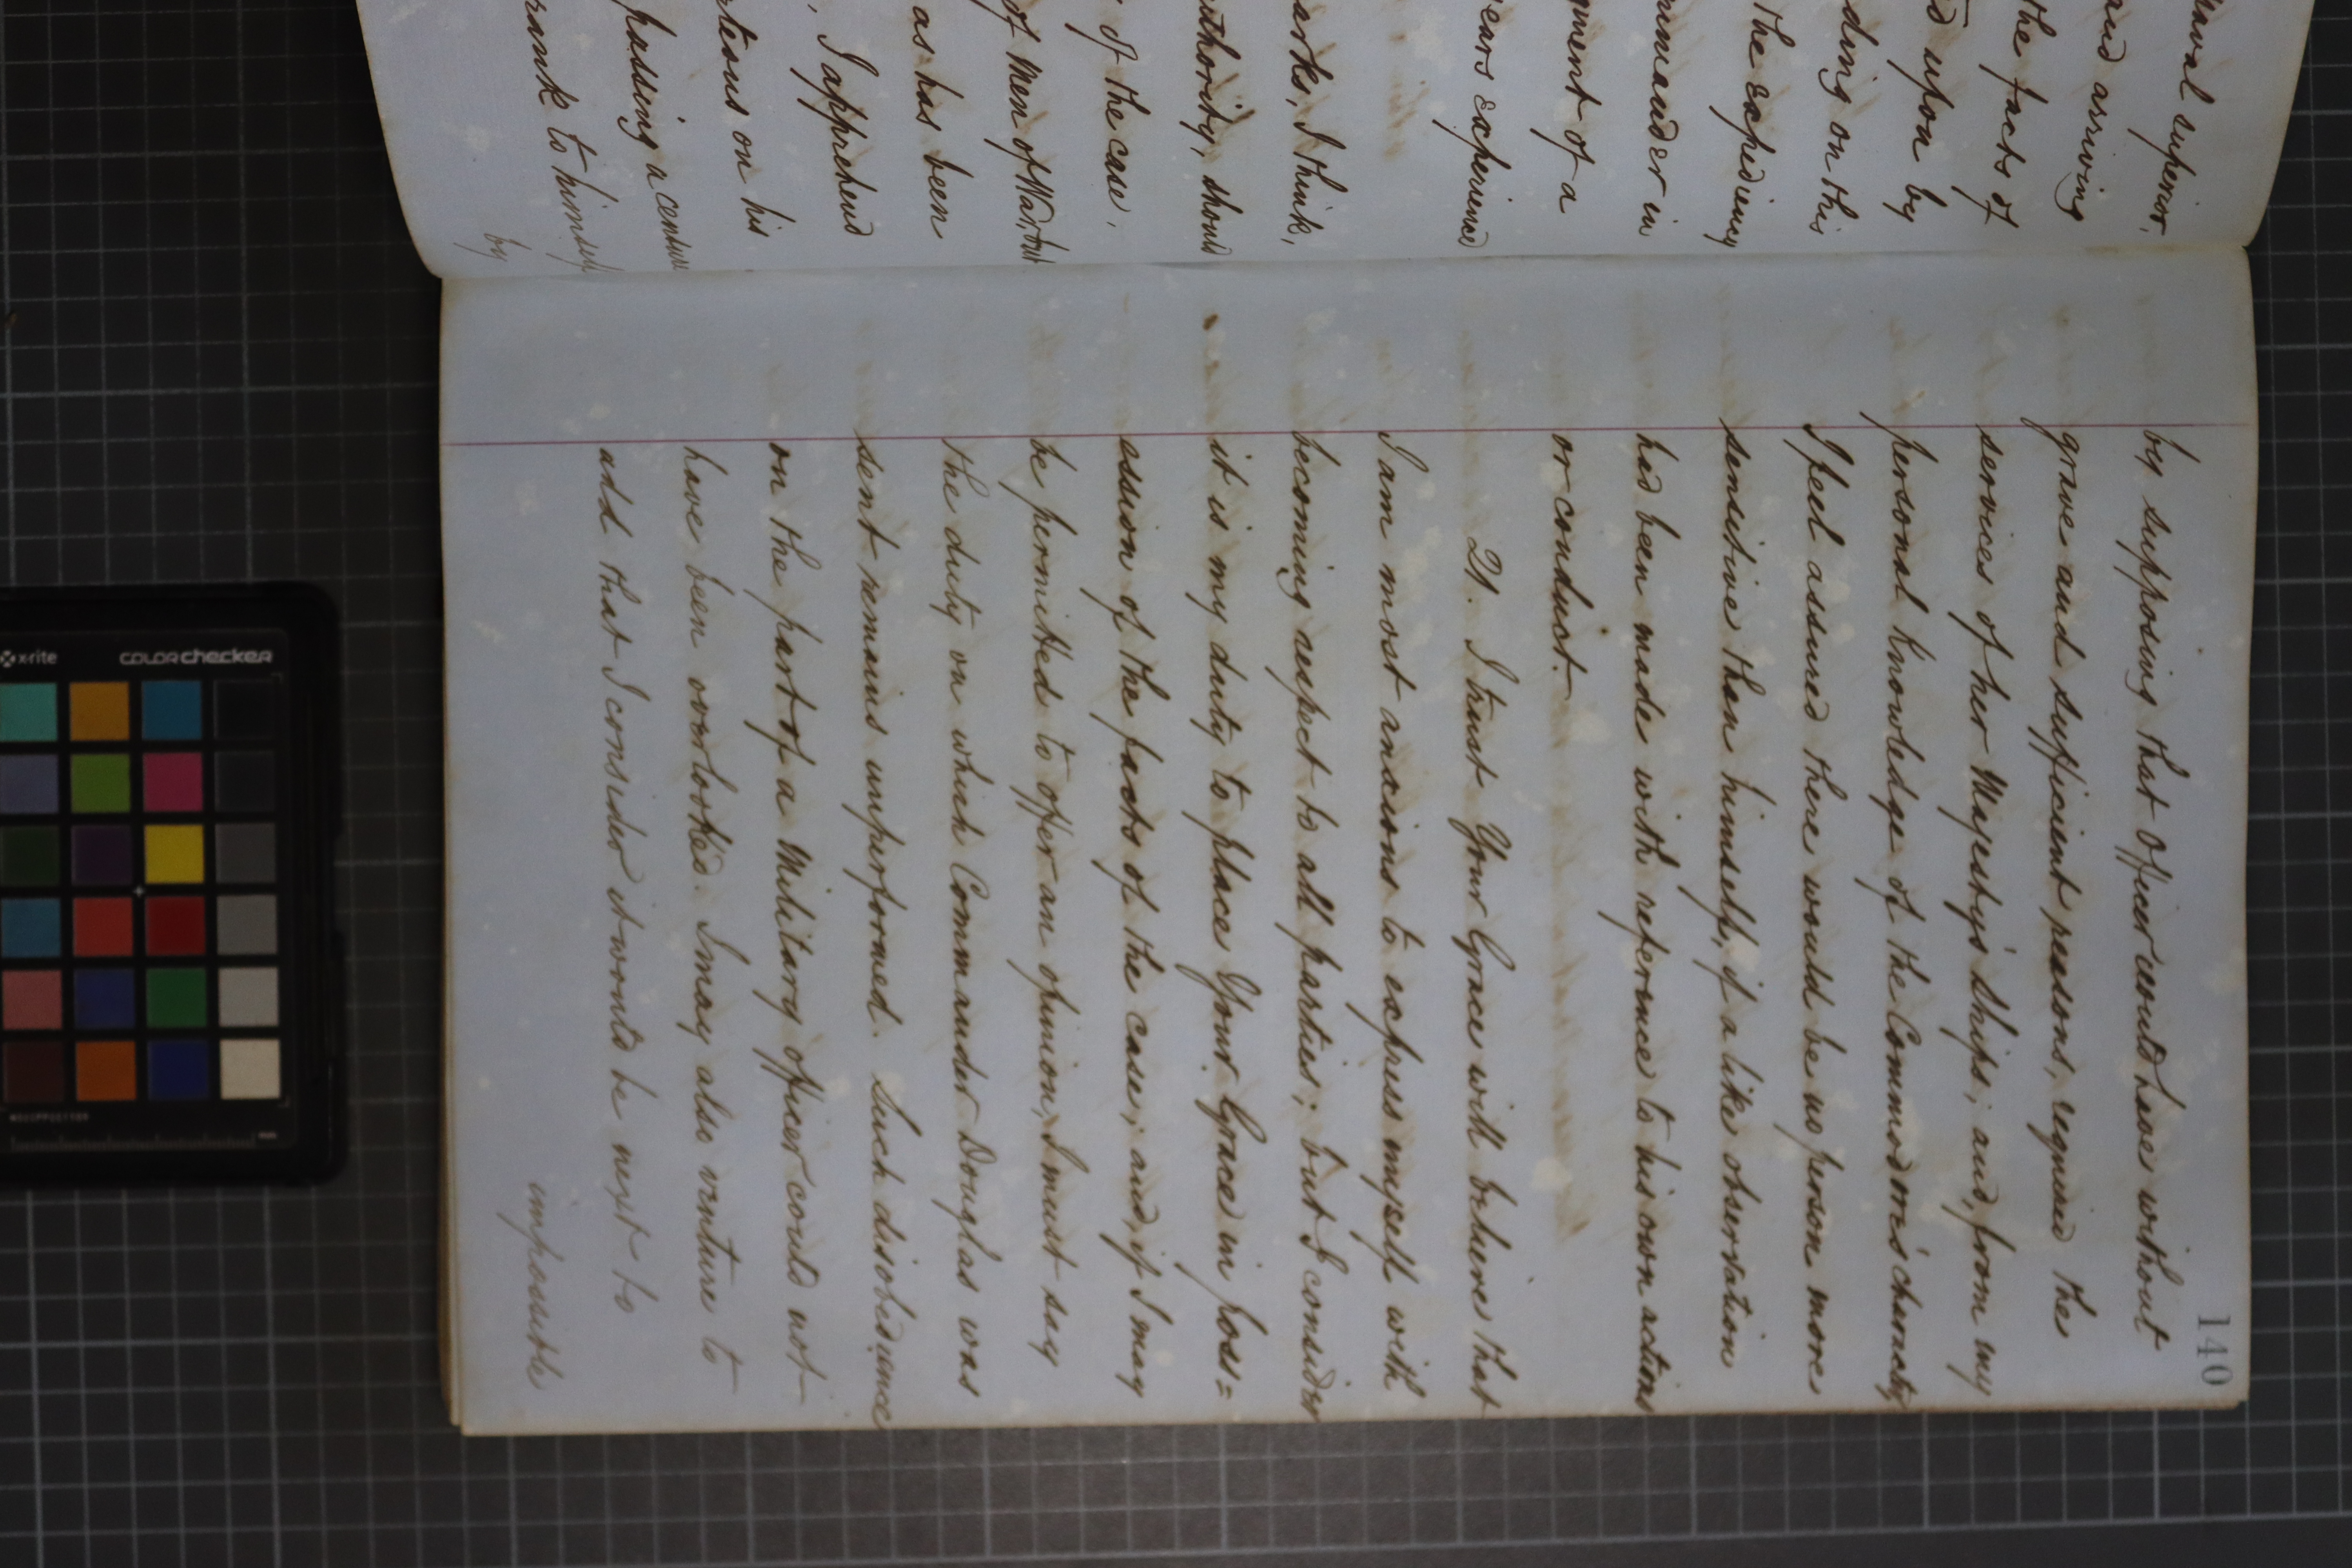 naval superior,
and arriving
the facts of
d upon by
ding on this
the expediency
mmander in
gment of a
ears experience
arks, I think,
thority, should
of the case,
of Men of War, but
as has been
I apprehend
rteous on his
passing a censure
rank to himself
by
140
by supposing that Officer could have without
grave and sufficient reasons, required the
services of her Majesty's Ships; and, from my
personal knowledge of the Commodore's character,
I feel assured there would be no person more
sensitive than himself, if a like observation
had been made with reference to his own actions
or conduct.
21. I trust Your Grace will believe that
I am most anxious to express myself with
becoming respect to all parties; but I consider
it is my duty to place Your Grace in poss=
ession of the facts of the case; and, if I may
be permitted to offer an opinion, I must say
the duty on which Commander Douglas was
sent remains unperformed. Such disobedience
on the part of a Military officer could not
have been overlooked. I may also venture to
add that I consider it would be next to
impossible
x-rite
colorchecker